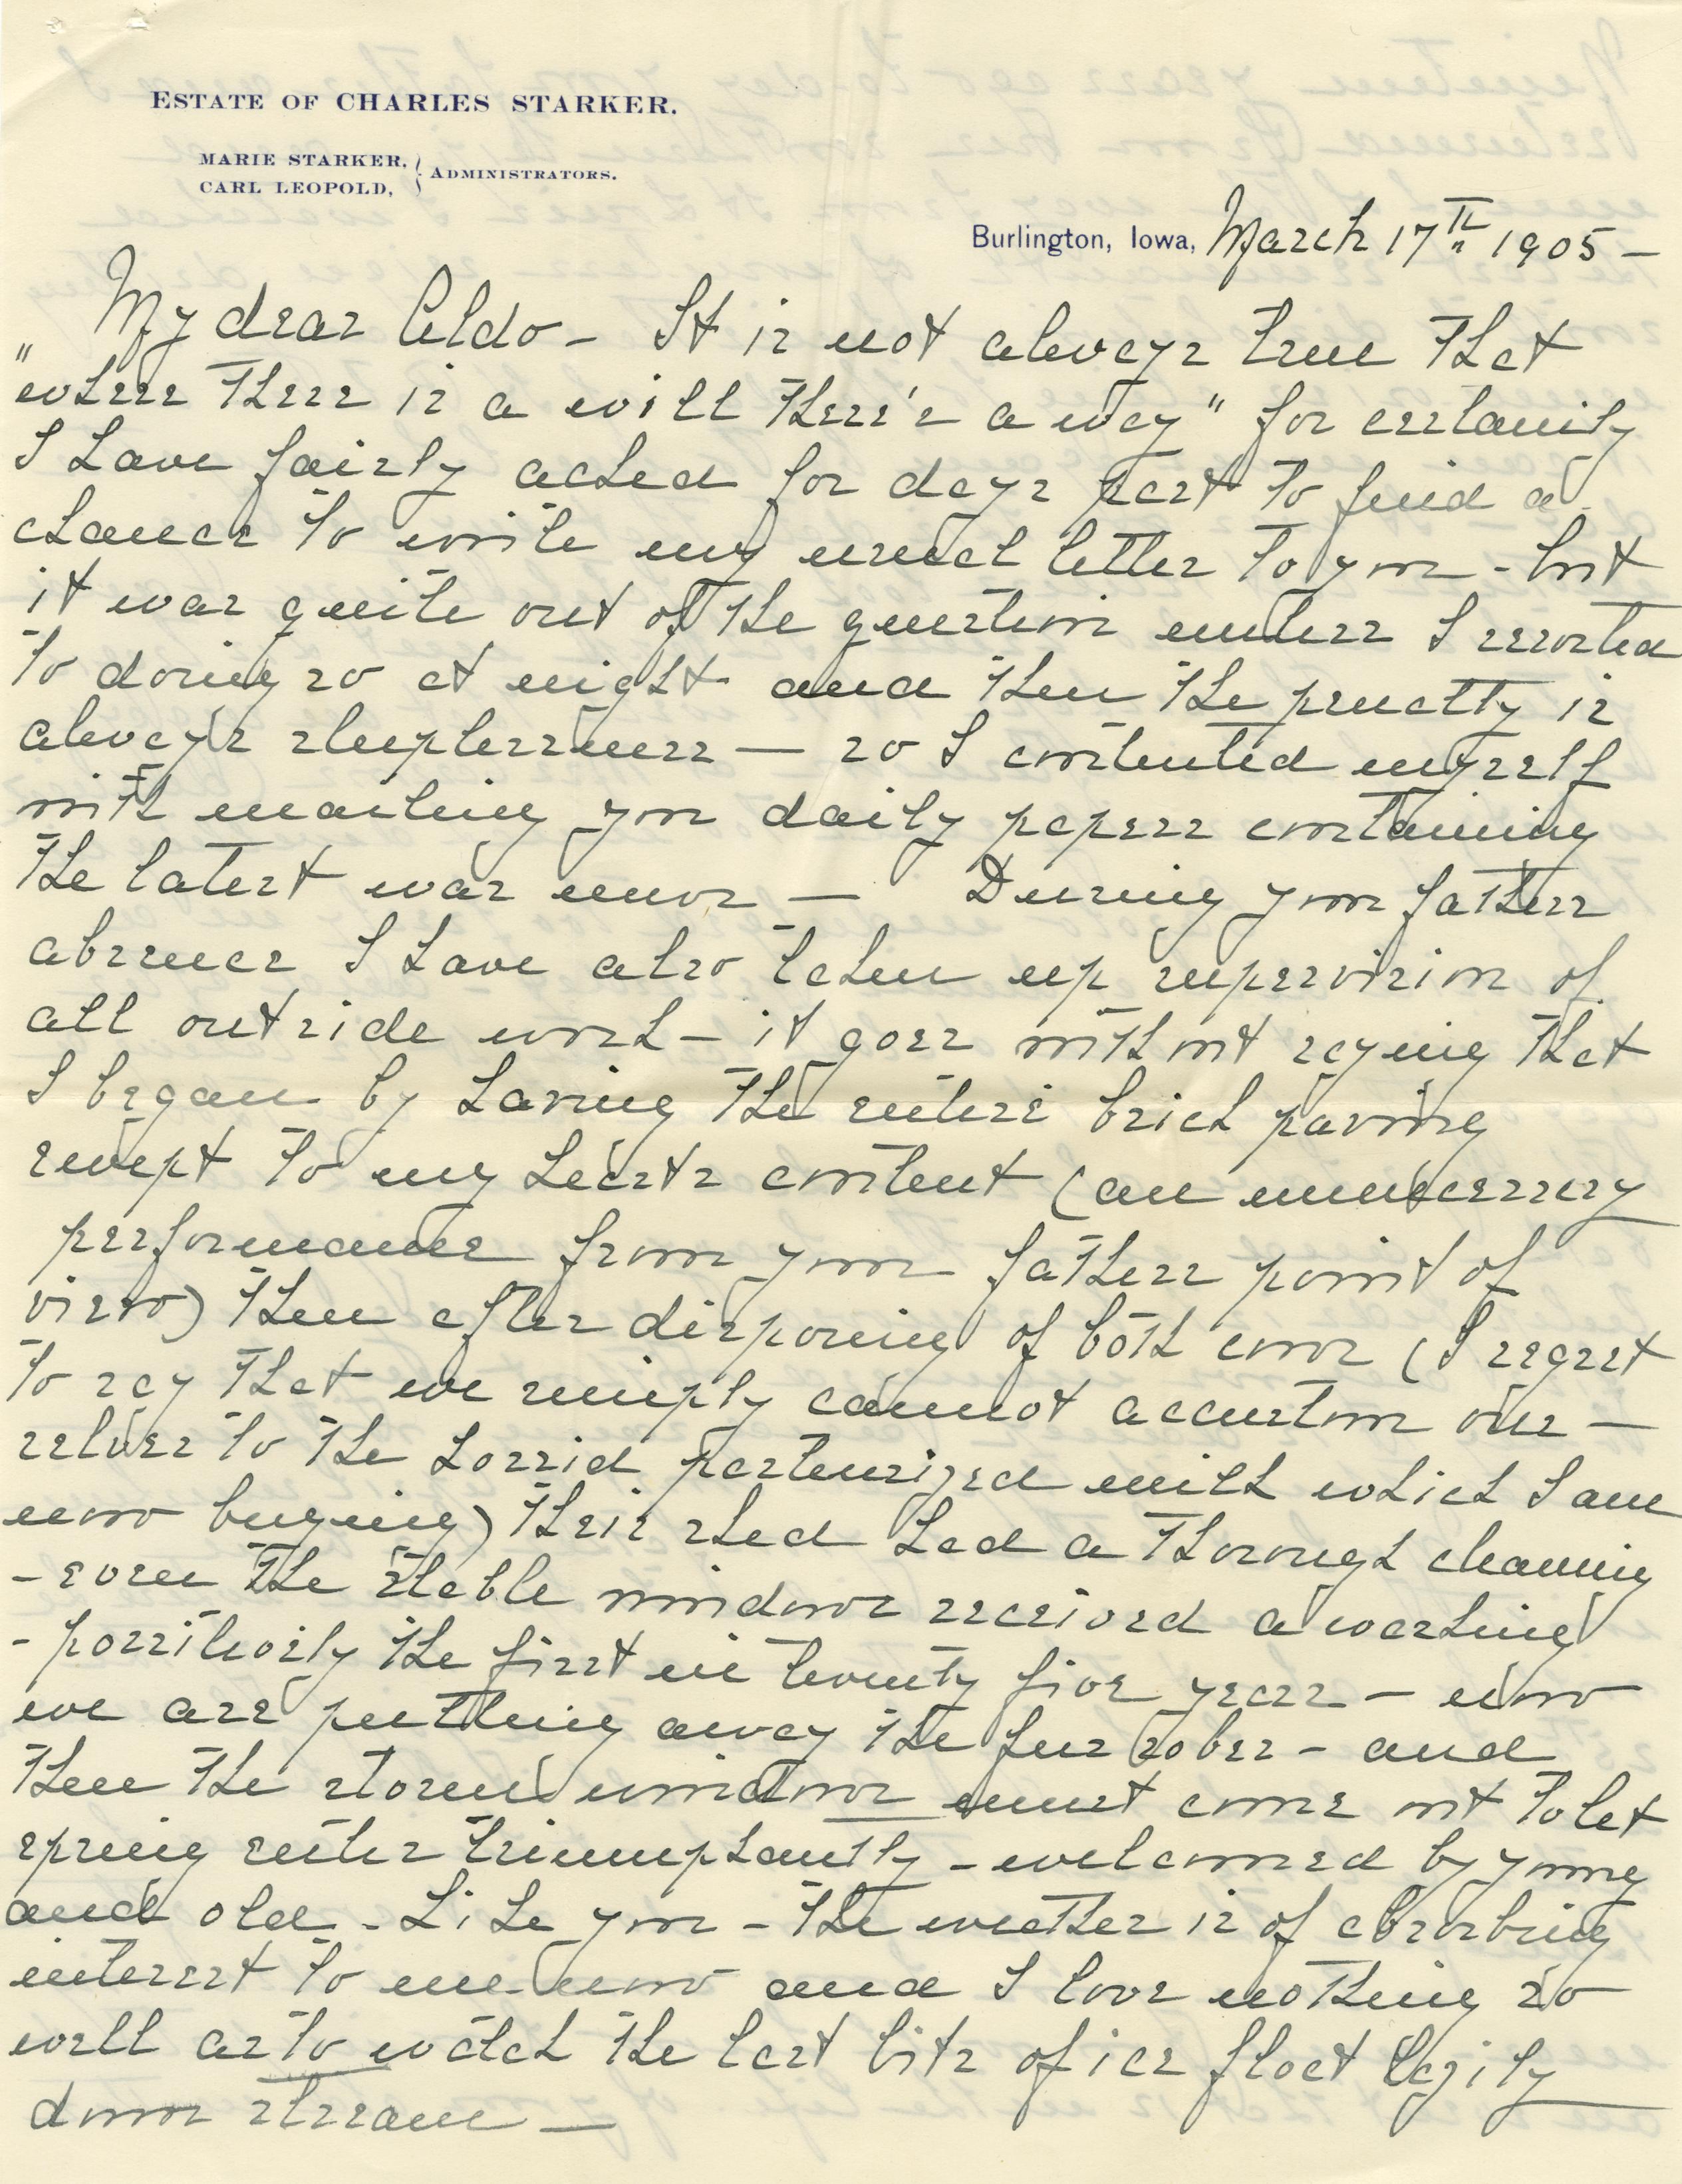 ESTATE OF CHARLES STARKER.
MARIE STARKER,
CARL LEOPOLD,
ADMINISTRATORS.
Burlington, Iowa, March 17th 1905 –
My dear Aldo – It is not always true that
"where there is a will there's a way" for certainly
I have fairly ached for days past to find a
chance to write my usual letter to you – but
it was quite out of the question unless I resorted
to doing so at night and then the penalty is
always sleeplessness — so I contented myself
with mailing you daily papers containing
the latest war news — During your fathers
absence I have also taken up supervision of
all outside work – it goes without saying that
I began by having the entire brick paving
swept to my hearts content (an unnecessary
performance from your fathers point of
view) then after disposing of both cows (I regret
to say that we simply cannot accustom our –
selves to the horrid pasteurized milk which I am
now buying) their shed had a thorough cleaning
– even the stable windows received a washing
– possitively the first in twenty five years – now
we are putting away the fur robes – and
then the storm windows must come out to let
spring enter triumphantly – welcomed by young
and old – Like you – the weather is of absorbing
interest to me now and I love nothing so
well as to watch the last bits of ice float lazily
down stream —